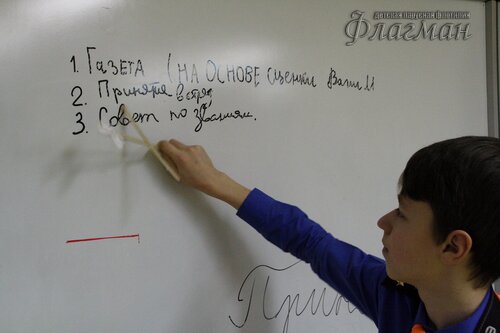 детская парусная флотилия
Флагман
1. Газета (на основе сценки Вали М
2. Принятие в отряд
3. Совет по званиям.
Прин